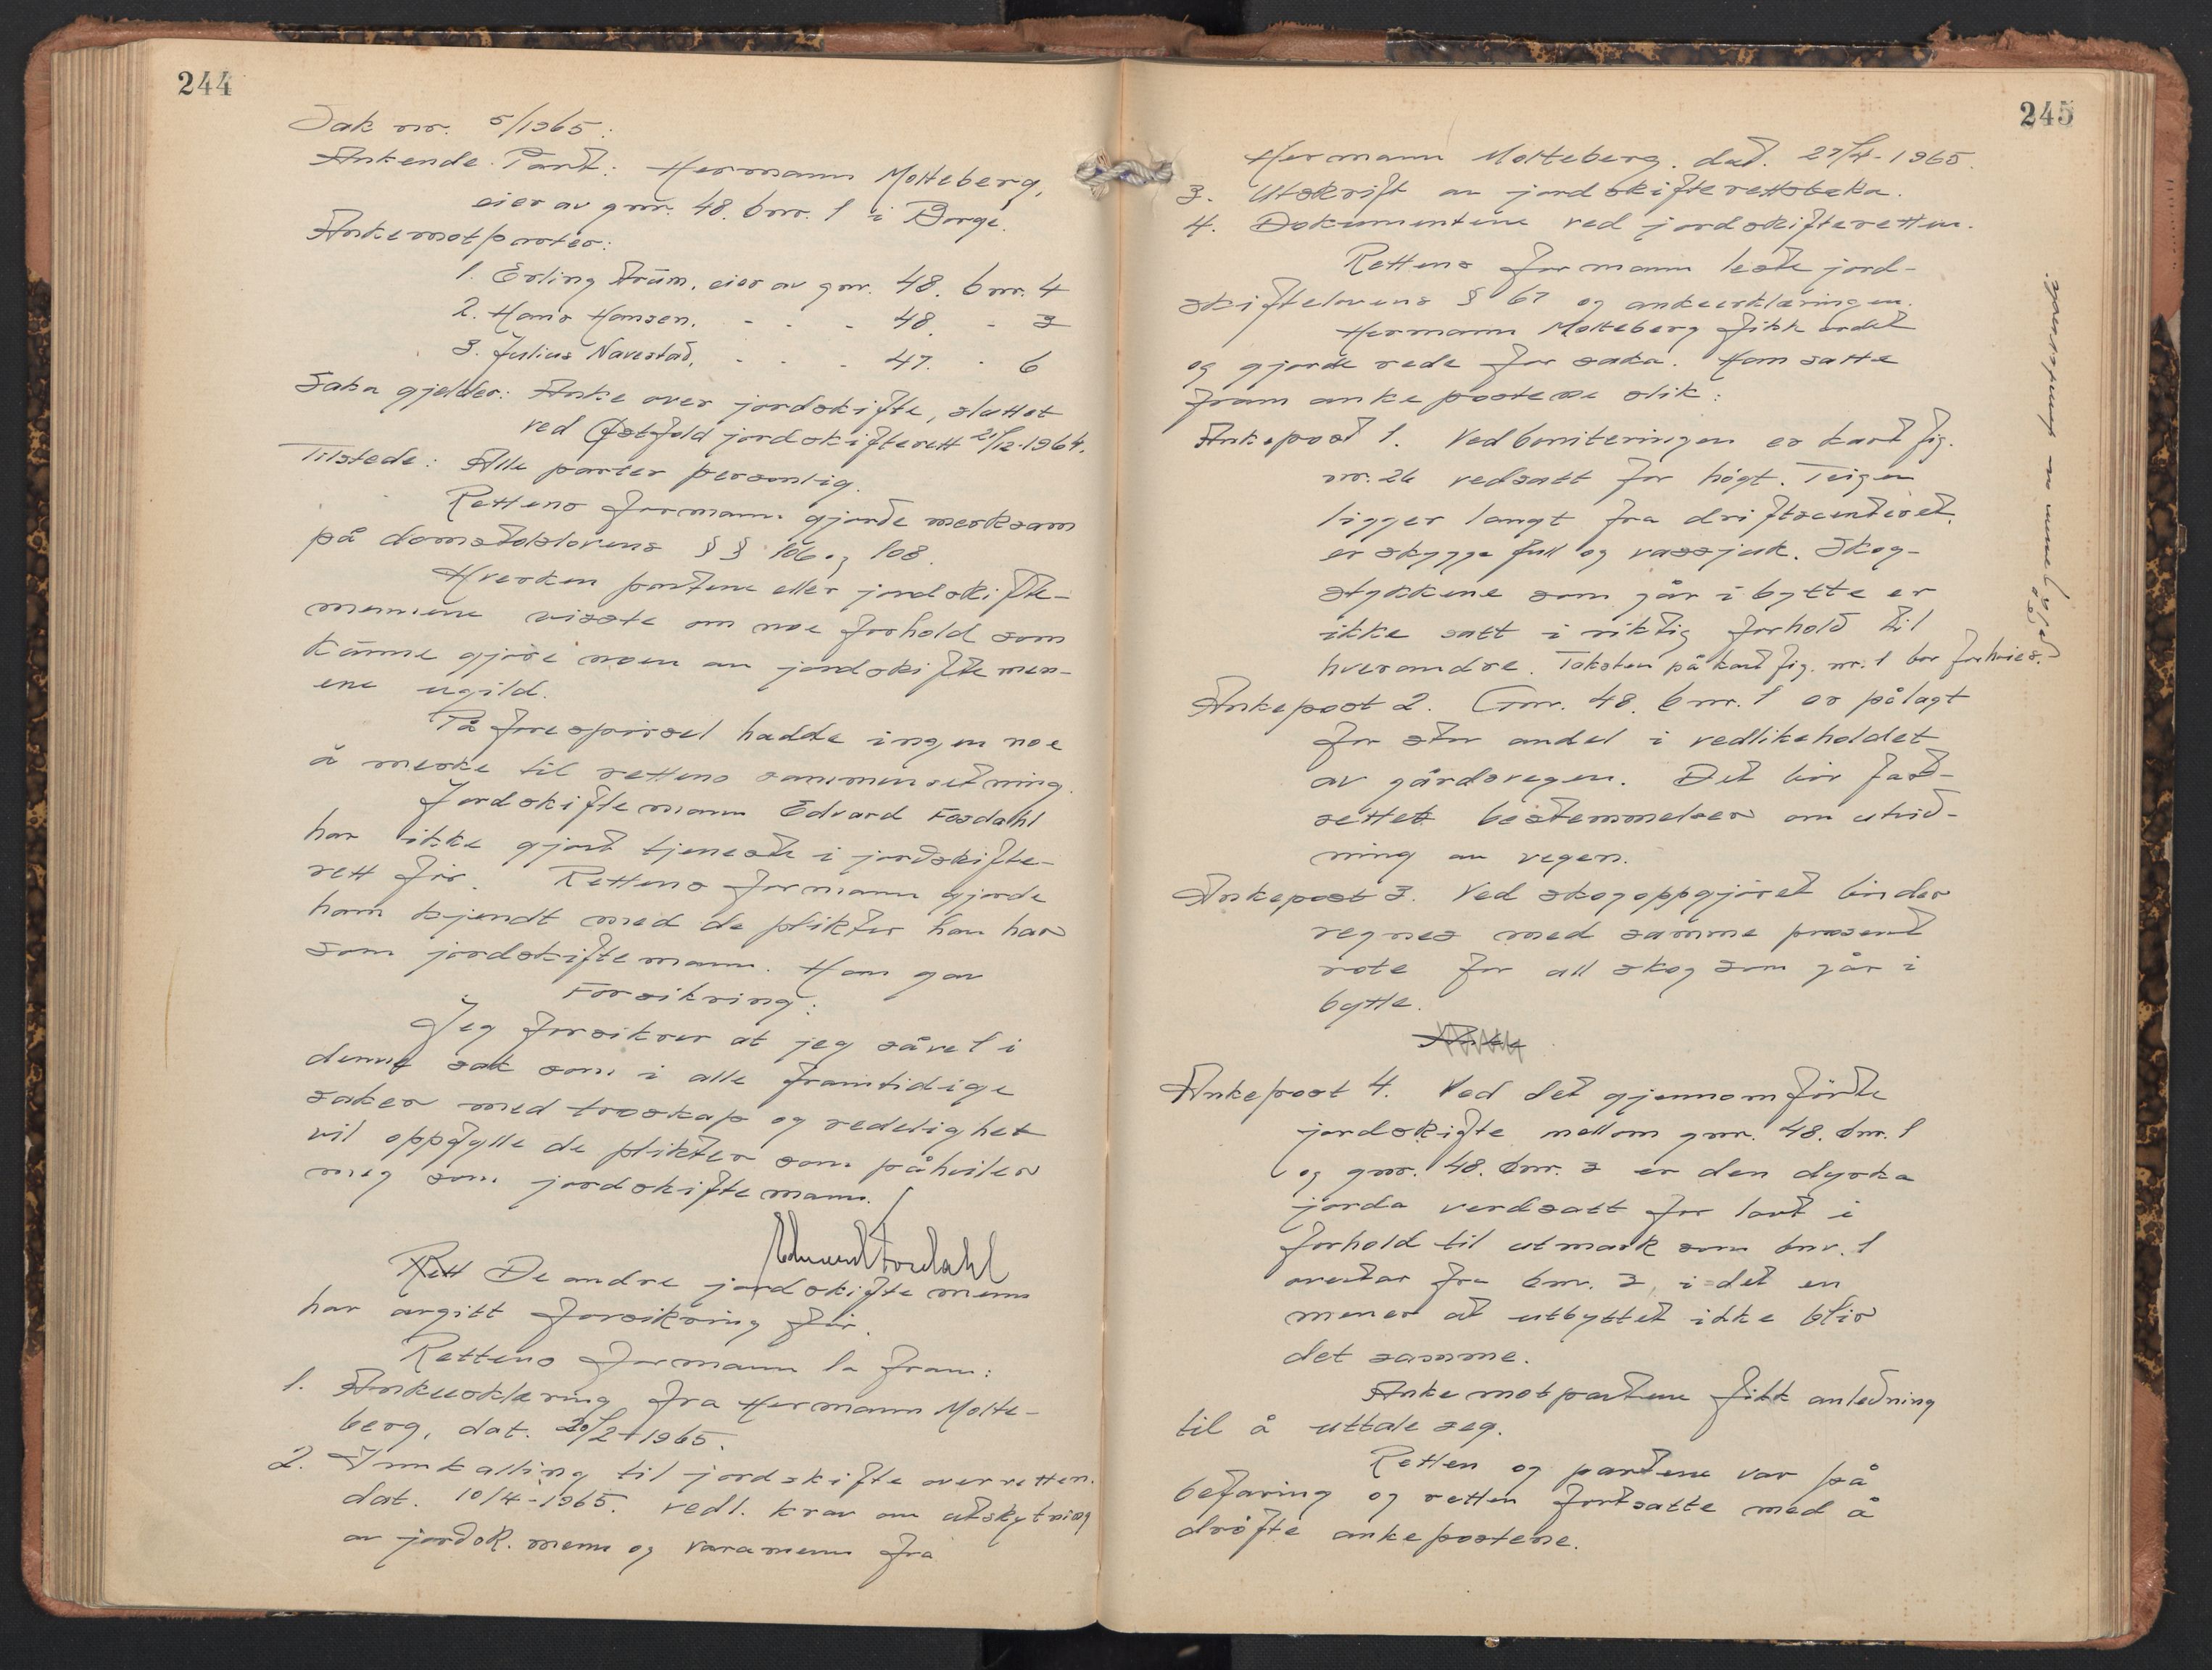 244
Sak nr. 5/1965.
Ankende Part: Hermann Molteberg,
eier av gnr. 48. bnr. 1 i Borge.
Ankemotparter:
1. Erling Strüm, eier av gnr. 48. bnr. 4
2. Hans Hansen. - - - 48. - 3
3. Julius Navestad. - - - 47. - 6
Saka gjelder: Anke over jordskifte, sluttet
ved Østfold jordskifterett 21/12-1964.
Tilstede: Alle parter personlig.
Rettens formann gjorde merksam
på domstolslovens §§ 106 og 108.
Hverken partene eller jordskifte-
mennene visste om noe forhold som
kunne gjøre noen av jordskiftemen-
ene ugild.
På forespørsel hadde ingen noe
å merke til rettens sammensetning.
Jordskiftemann Edvard Fosdahl
har ikke gjort tjeneste i jordskifte-
rett før. Rettens formann gjorde
ham kjendt med de plikter han har
som jordskiftemann. Han gav
Forsikring:
Jeg forsikrer at jeg såvel i
denne sak som i alle framtidige
saker med troskap og redelighet
vil oppfylle de plikter som påhviler
meg som jordskiftemann.
Edvard Fosdahl
Rett De andre jordskiftemenn
har avgitt forsikring før.
Rettens formann la fram:
1. Ankeerklæring fra Hermann Molte-
berg, dat. 20/2-1965.
2. Innkalling til jordskifteoverretten.
dat. 10/4-1965. vedl. krav om utskytning
av jordsk. menn og varamenn fra
245
Hermann Molteberg. dat. 27/4-1965.
3. Utskrift av jordskifterettsboka.
4. Dokumentene ved jordskifteretten.
Rettens formann leste jord-
skiftelovens § 67 og ankeerklæringen.
Hermann Molteberg fikk ordet
og gjorde rede for saka. Han satte
fram ankepostene slik:
Ankepost 1. Ved boniteringen er kart fig.
nr. 26 verdsatt for høgt. Teigen
ligger langt fra driftscenteret.
er skyggefull og vassjuk. Skog-
stykkene som går i bytte er
ikke satt i riktig forhold til
hverandre. Taksten på kart fig. nr. 1 bør forhøies.
Ankepost 2. Gnr. 48. bnr. 1 er pålagt
for stor andel i vedlikeholdet
av gårdsvegen. Det bør fast-
settet bestemmelser om utvid-
ning av vegen.
Ankepost 3. Ved skogoppgjøret bør der
regnes med samme prosent
rote for all skog som går i
bytte.
Ankepost 4. Ved det gjennomførte
jordskifte mellom gnr. 48. bnr. 1
og gnr. 48. bnr. 3 er den dyrka
jorda verdsatt for lavt i
forhold til utmark som bnr. 1
avstår fra bnr. 3, i-det en
mener at utbyttet ikke blir
det samme.
Ankemotpartene fikk anledning
til å uttale seg.
Retten og partene var på
befaring og retten fortsatte med å
drøfte ankepostene.